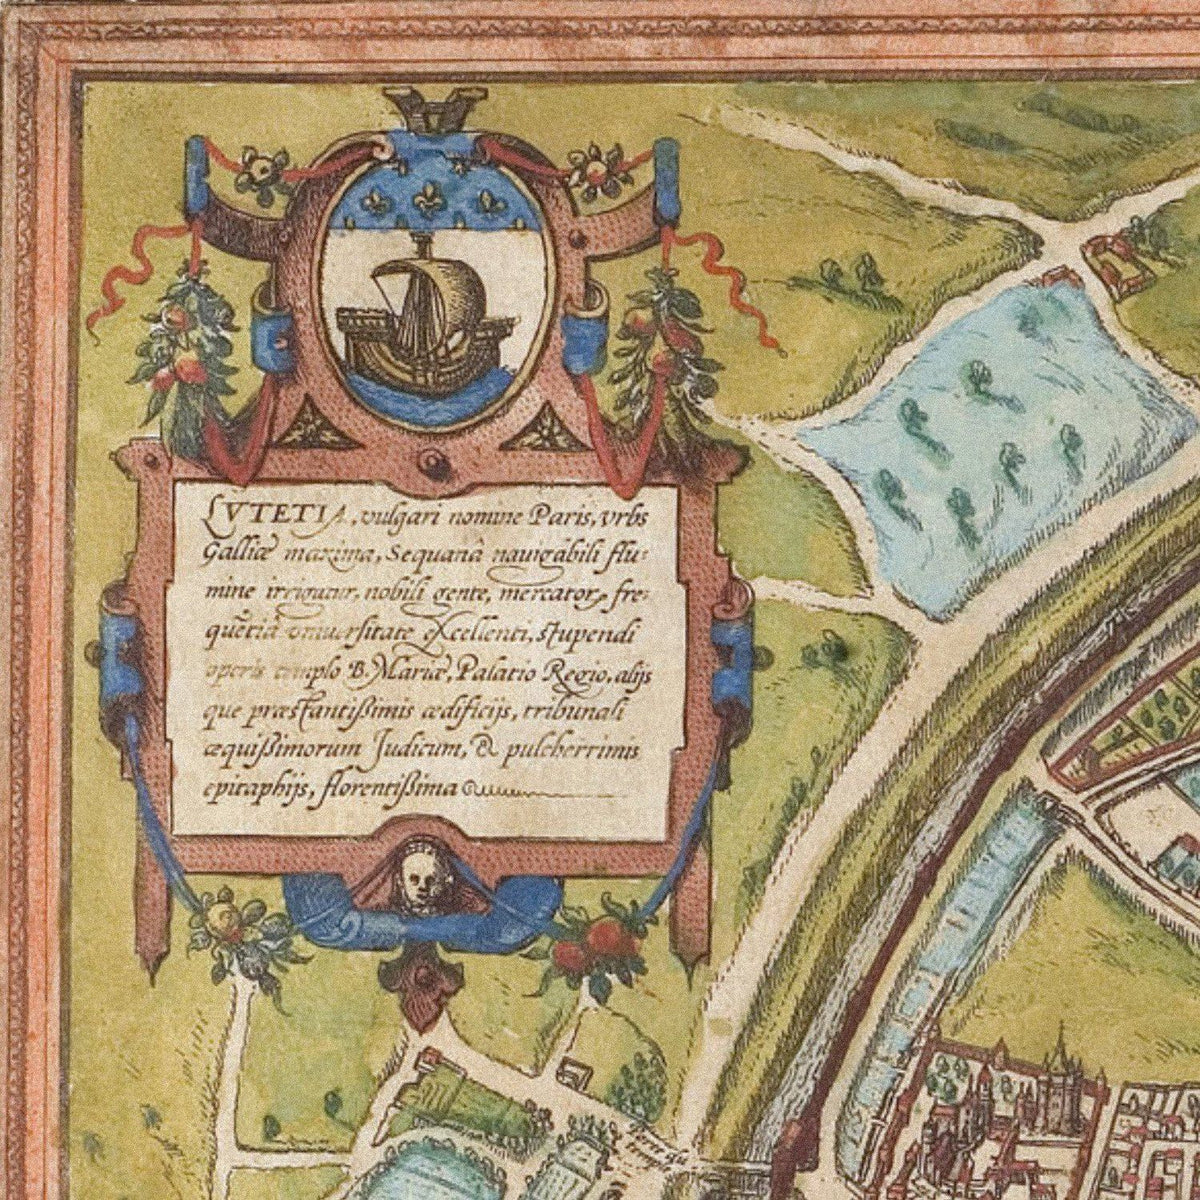 LVTETIA, vulgari nomine Paris, vrbs
Galliæ maxima, Sequanâ nauigabili flu-
mine irrigatur, nobili gente, mercator, fre-
quẽtiâ vniuersitate excellenti, stupendi
operis templo B. Mariæ, Palatio Regio, alijs
que præstantißimis ædificijs, tribunali
æquißimorum Judicum, & pulcherrimis
epitaphijs, florentißima